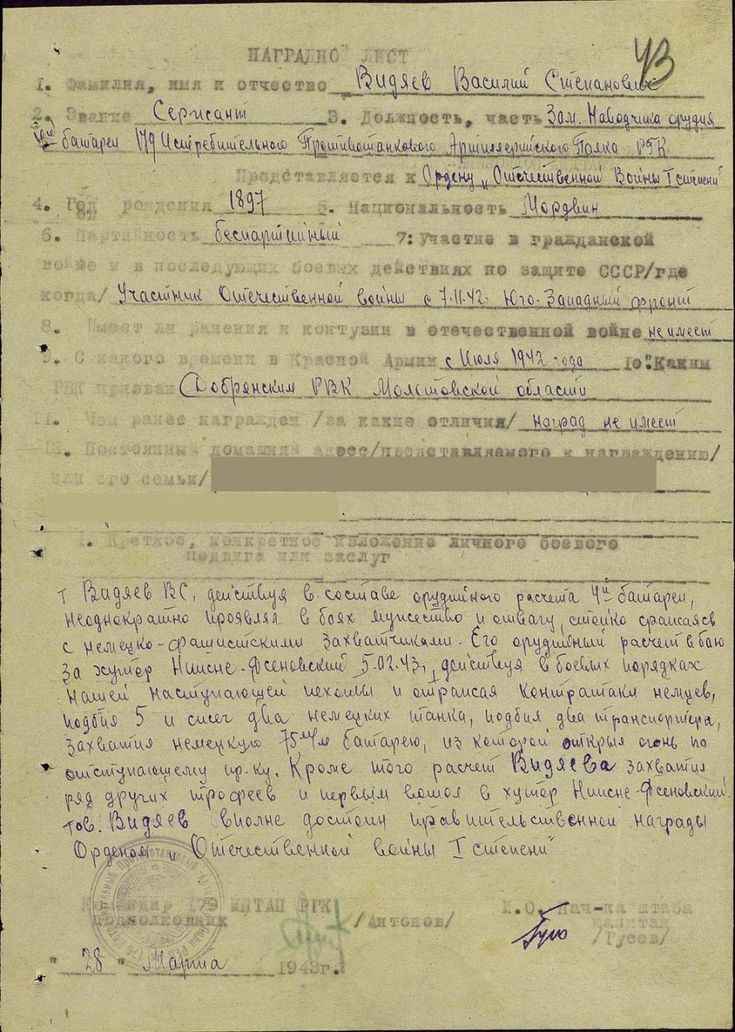 43
НАГРАДНОЙ ЛИСТ
1. Фамилия, имя и отчество Видяев Василий Степанович
2. Звание Сержант 3. Должность, часть Зам. Наводчика орудия
4ой батареи 179 Истребительного Противотанкового Артиллерийского Полка РГК
Представляется к Ордену „Отечественной Войны I степени"
4. Год рождения 1897 5. Национальность Мордвин
6. Партийность беспартийный 7. Участие в гражданской
войне и в последующих боевых действиях по защите СССР/где
когда/ Участник Отечественной войны с 7.11.42. Юго-Западный фронт
8. Имеет ли ранения и контузии в отечественной войне не имеет
9. С какого времени в Красной Армии с Июля 1942 года 10. Каким
РВК призван Добрянским РВК Молотовской области
11. Чем ранее награжден /за какие отличия/ наград не имеет
12. Постоянный домашний адрес/представляемого к награждению/
или его семьи/
1. Краткое, конкретное изложение личного боевого
подвига или заслуг
т Видяев ВС, действуя в составе орудийного расчета 4й батареи,
неоднократно проявлял в боях мужество и отвагу, стойко сражаясь
с немецко-фашистскими захватчиками. Его орудийный расчет в бою
за хутор Нижне-Ясеновский 5.02.43, действуя в боевых порядках
нашей наступающей пехоты и отражая контратаки немцев,
подбил 5 и сжег два немецких танка, подбил два транспортера,
захватил немецкую 75 м/м батарею, из которой открыл огонь по
отступающему пр-ку. Кроме того расчет Видяева захватил
ряд других трофеев и первым вошел в хутор Нижне-Ясеновский.
тов. Видяев вполне достоин правительственной награды
Орденом „Отечественной войны I степени"
Командир 179 ИПТАП РГК И.О. Нач-ка штаба
подполковник /Антонов/ капитан
/Гусев/
"28" Марта 1943г.